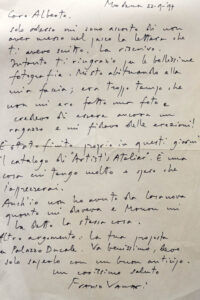 Modena 22-9-94
Caro Alberto,
solo adesso mi sono accorto di non
aver messo nel pacco la lettera che
ti avevo scritto. La riscrivo.
Intanto ti ringrazio per le bellissime
fotografie. Mi sto abituando alla
mia faccia; era troppo tempo che
non mi ero fatto una foto e
credevo di essere ancora un
ragazzo e mi fidavo delle erezioni!
È stato finito proprio in questi giorni
il catalogo di Artist's Atelier. È una
cosa cui tengo molto e spero che
l'apprezzerai.
Anch'io non ho avuto da Casanova
quanto mi doveva e Monon mi
ha detto la stessa cosa.
Altro argomento: la tua proposta
a Palazzo Ducale. Va benissimo, devo
solo saperlo con un buon anticipo.
un carissimo saluto
Franco Vaccari